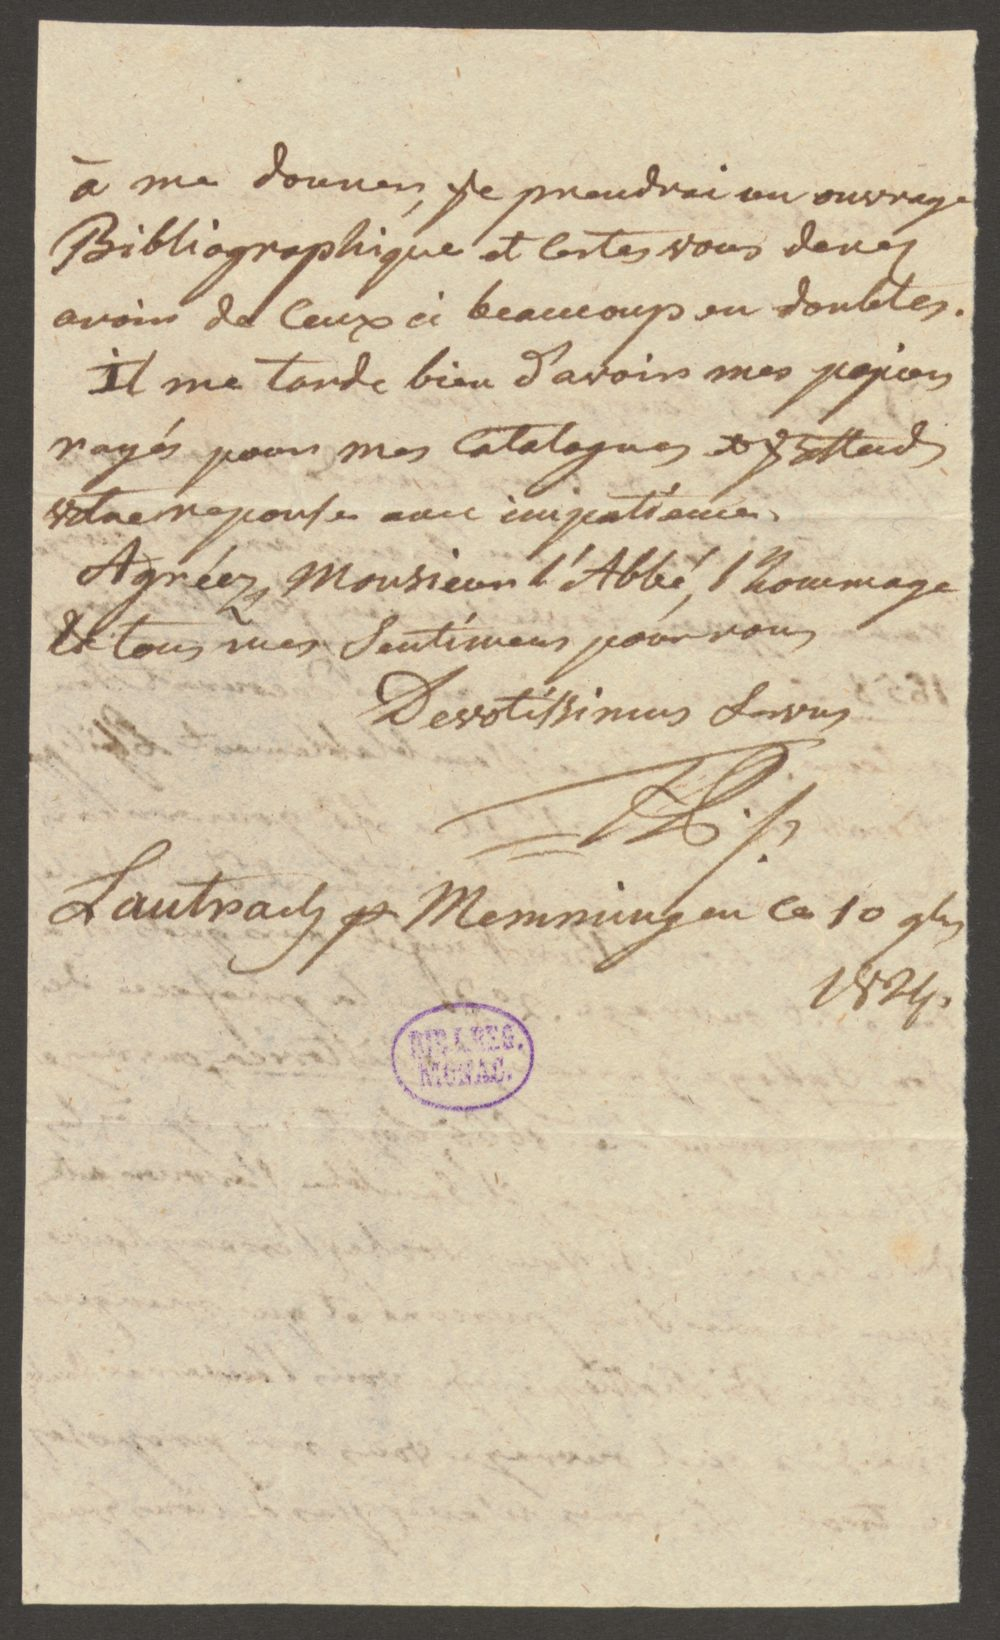 à me donner, je prendrai un ouvrage
Bibliographique et certes vous devez
avoir de ceux ci beaucoup en doubles.
Il me tarde bien d'avoir mes papiers
rayés pour mes Catalogues et j'attends
votre reponse avec impatience.
Agréez, Monsieur l'Abbé, l'hommage
de tous mes sentimens pour vous
Devotissimus Servus
Lautrach p Memmingen ce 10 9bre
1824.
BIBL. REG.
MONAC.